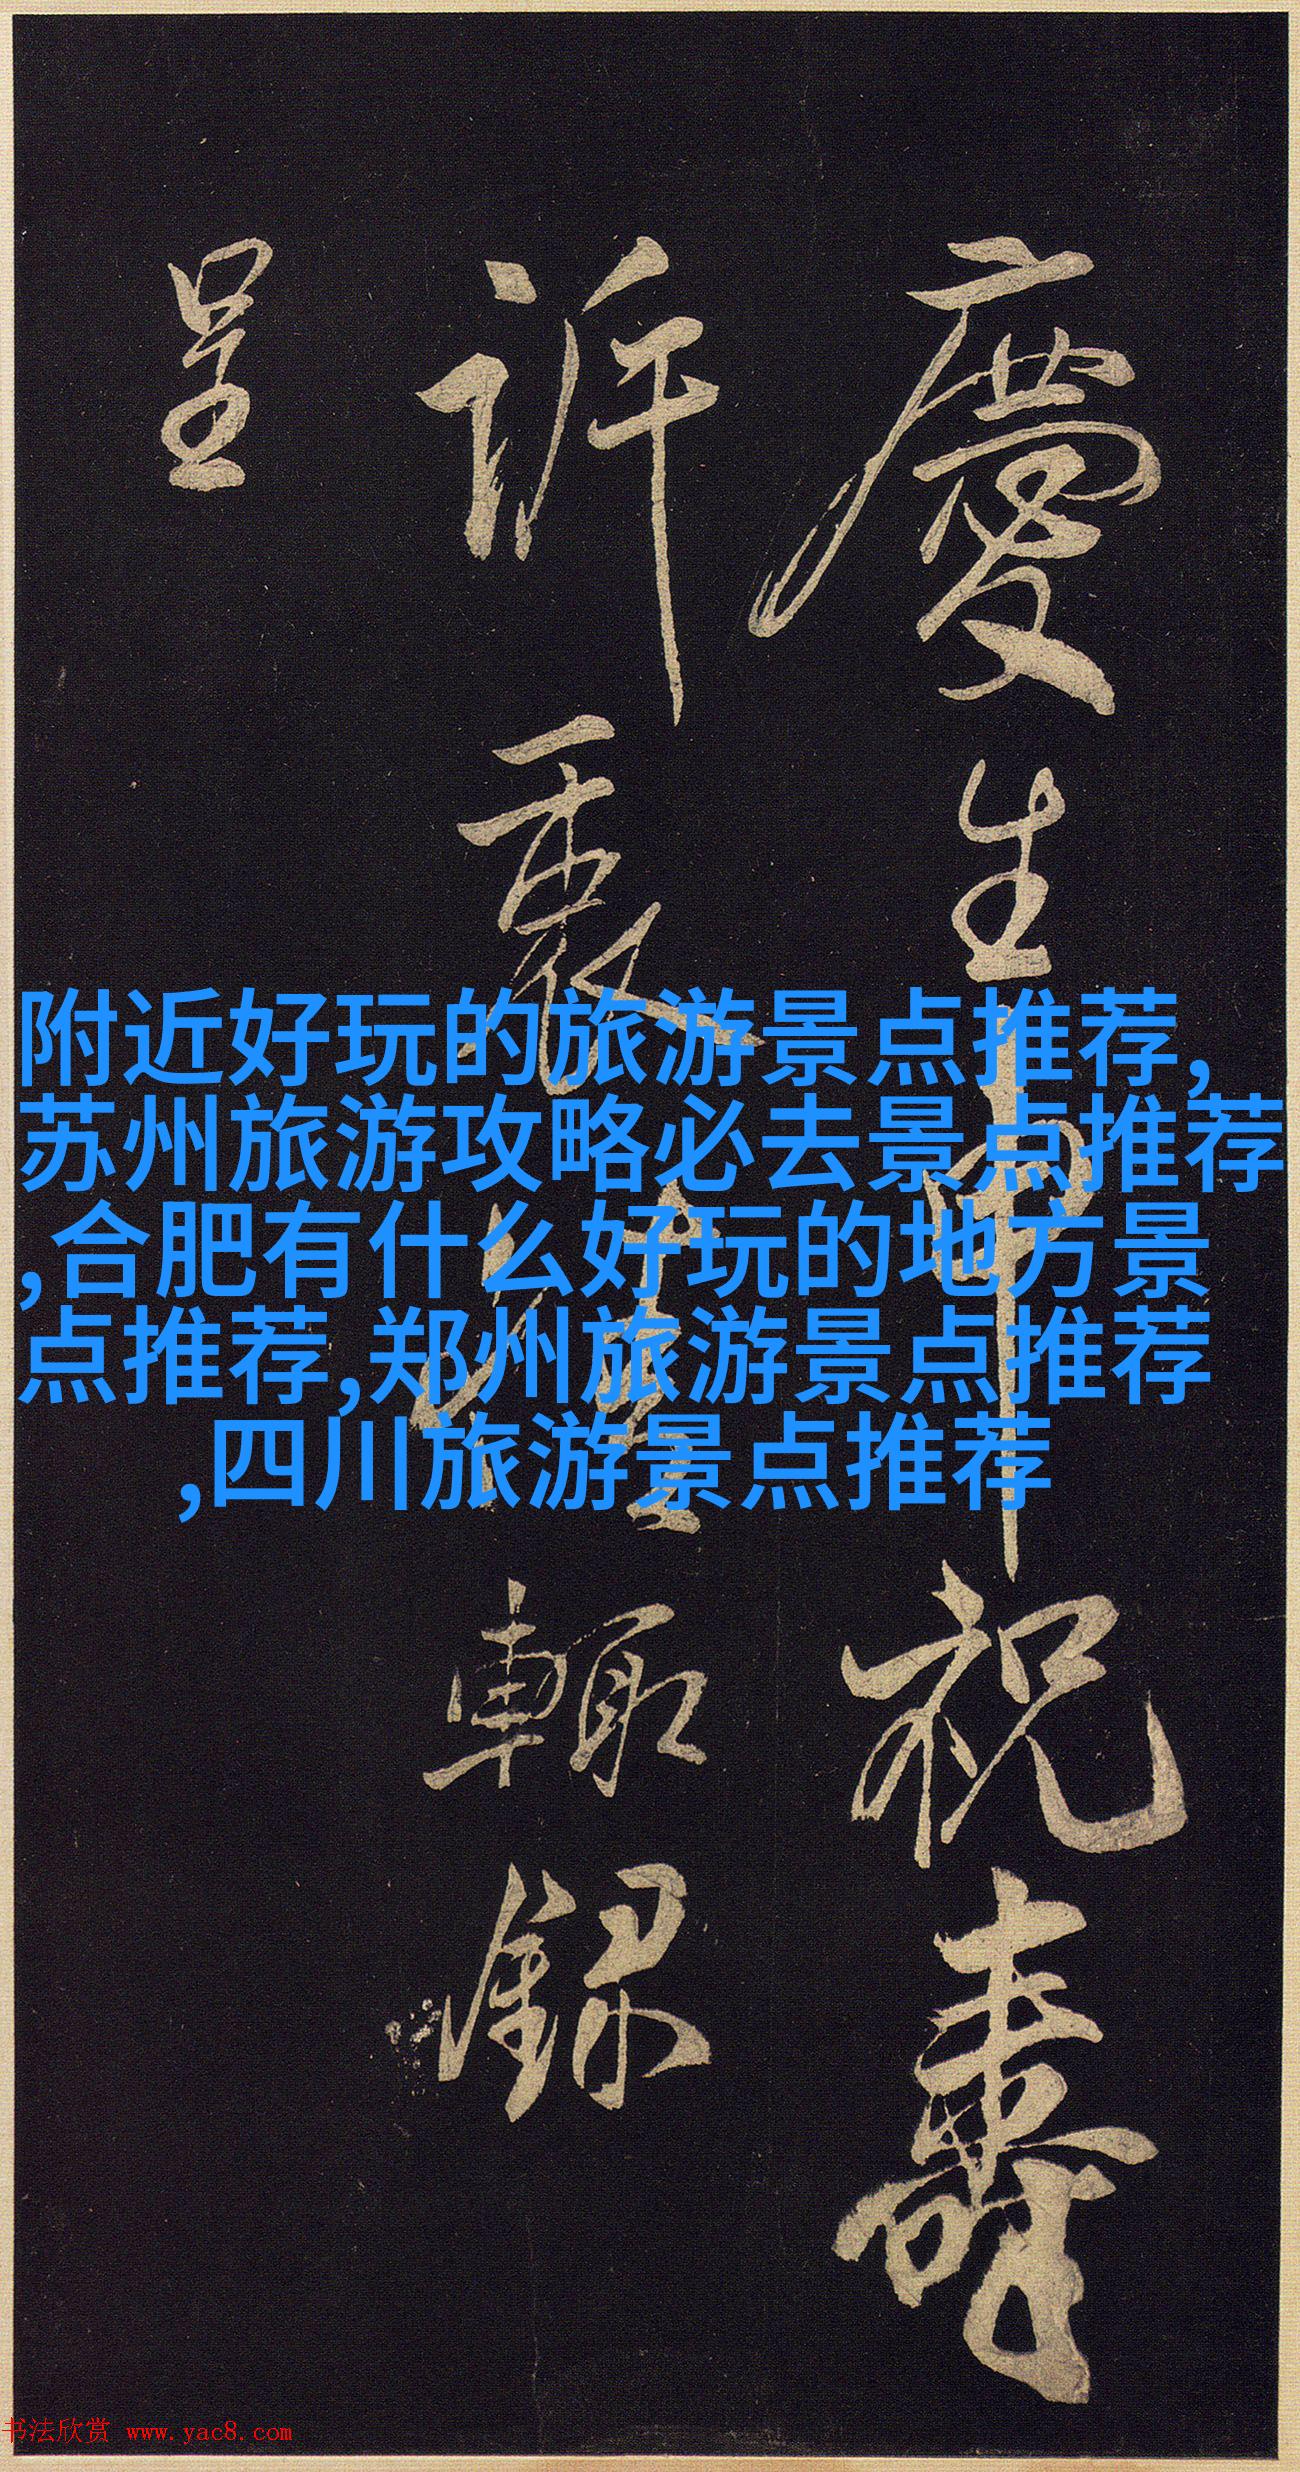 慶生申祝壽
訴衷情輙錄
呈
附近好玩的旅游景点推荐,
苏州旅游攻略必去景点推荐
,合肥有什么好玩的地方景
点推荐,郑州旅游景点推荐
,四川旅游景点推荐
书法欣赏 www.yac8.com